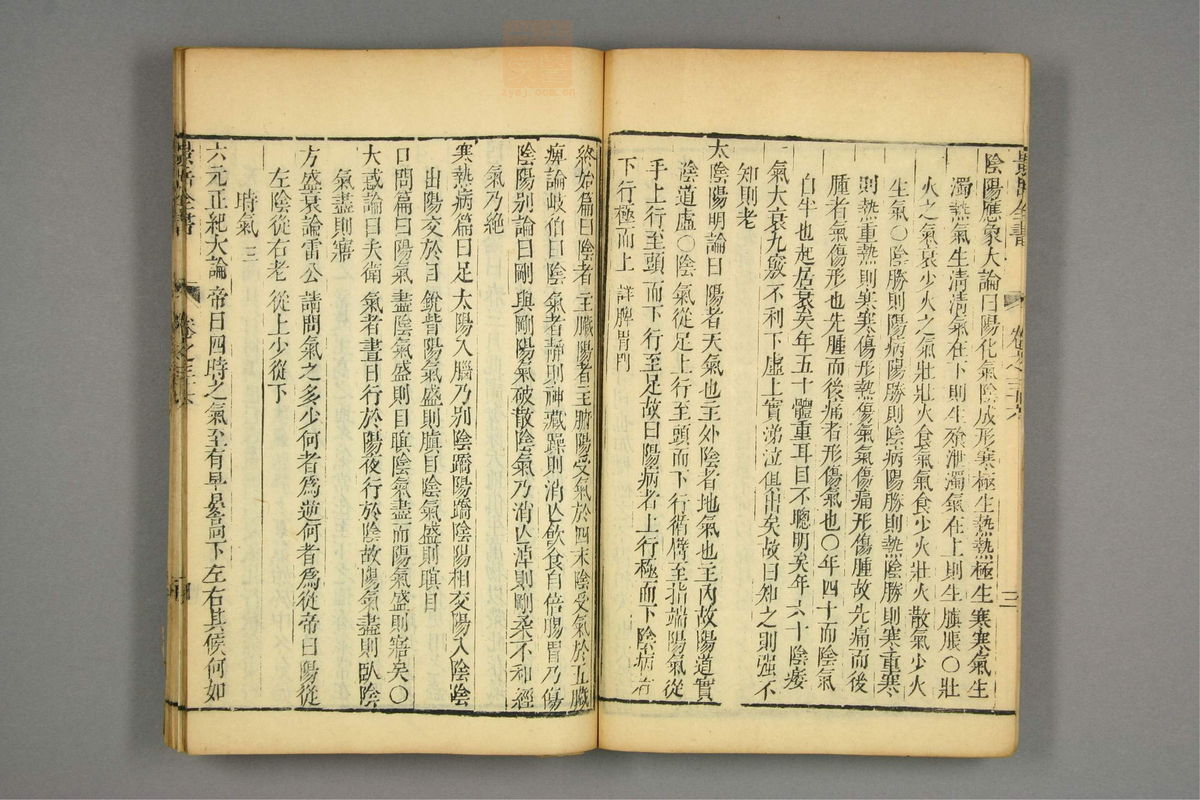 陰陽應象大論曰陽化氣陰成形寒極生熱熱極生寒寒氣生
濁熱氣生清清氣在下則生飱泄濁氣在上則生䐜脹○壯
火之氣衰少火之氣壯壯火食氣氣食少火壯火散氣少火
生氣○陰勝則陽病陽勝則陰病陽勝則熱陰勝則寒重寒
則熱重熱則寒寒傷形熱傷氣氣傷痛形傷腫故先痛而後
腫者氣傷形也先腫而後痛者形傷氣也○年四十而陰氣
自半也起居衰矣年五十體重耳目不聰明矣年六十陰痿
氣大衰九竅不利下虛上實涕泣俱出矣故曰知之則强不
知則老
太陰陽明論曰陽者天氣也主外陰者地氣也主內故陽道實
陰道虛○陰氣從足上行至頭而下行循臂至指端陽氣從
手上行至頭而下行至足故曰陽病者上行極而下陰病者
下行極而上 詳脾胃門
終始篇曰陰者主臟陽者主腑陽受氣於四末陰受氣於五臟
痺論岐伯曰陰氣者靜則神藏躁則消亡飲食自倍腸胃乃傷
陰陽別論曰剛與剛陽氣破散陰氣乃消亡淖則剛柔不和經
氣乃絶
寒熱病篇曰足太陽入腦乃別陰蹻陽蹻陰陽相交陽入陰陰
出陽交於目銳眥陽氣盛則瞋目陰氣盛則瞑目
口問篇曰陽氣盡陰氣盛則目瞑陰氣盡而陽氣盛則寤矣○
大惑論曰夫衛氣者晝日行於陽夜行於陰故陽氣盡則臥陰
氣盡則寤
方盛衰論雷公請問氣之多少何者爲逆何者爲從帝曰陽從
左陰從右老從上少從下
時氣 三
六元正紀大論帝曰四時之氣至有早晏高下左右其候何如
景岳全書
卷之三十六
三
景岳全書